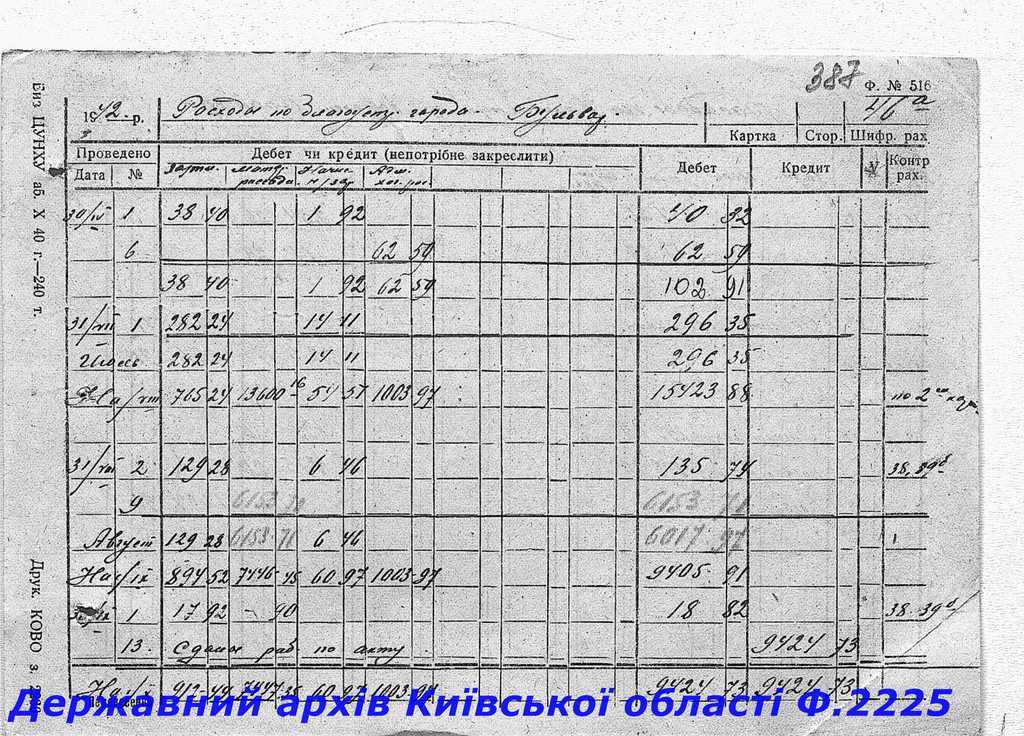 387
Ф. № 516
46а
1942 р. Расходы по благоустр. города. Бульвар.
Картка Стор. Шифр. рах
Проведено Дебет чи кредит (непотрібне закреслити) Дебет Кредит V Контр рах.
Дата №
30/ 1 38 40 1 92 40 32
6 62 59 62 59
38 40 1 92 62 59 102 91
31/VII 1 282 24 14 11 296 35
Июль 282 24 14 11 296 35
На /VIII 765 24 13600 16 54 51 1003 97 15423 88 по 2
31/VIII 2 129 28 6 46 135 74 38,
9 6153 71 6153 71
Август 129 28 6153 71 6 46 6017 97
На /IX 894 52 7446 45 60 97 1003 97 9405 91
1 17 92 90 18 82 38
13. Сданы раб по акту 9424 73
912 44 60 97 1003 97 9424 73 9424 73
Биз ЦУНХУ аб. X 40 г.—240 т.
Друк. КОВО з.
Державний архів Київської області Ф.2225